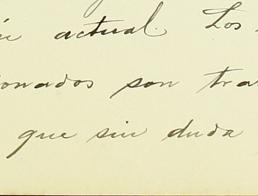 actual. Los
onados son tra
que sin duda